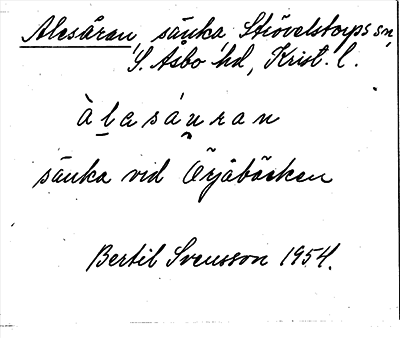 Alesåran, sänka, Stövelstorps sn,
S. Åsbo hd, Krist. l.
à l e s á u r a n
sänka vid Örjabäcken
Bertil Svensson 1954.